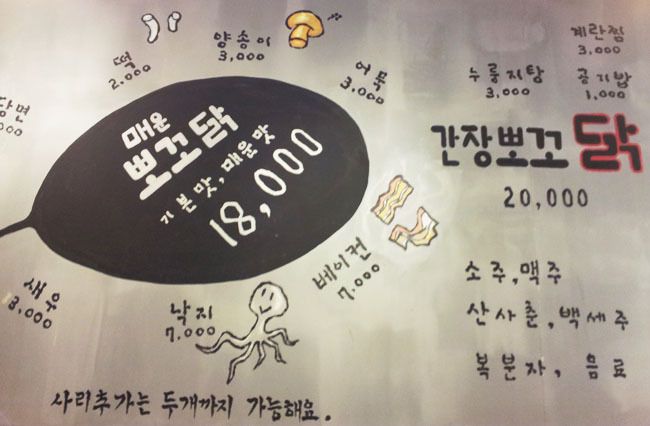 계란찜
3,000
양송이
3,000
떡
2.000
어묵
3,000
누룽지탕
3,000
공기밥
1,000
당면
매운
뽀꼬닭
기본맛, 매운맛
18,000
간장뽀꼬닭
20,000
베이컨
7.000
새우
3,000
낙지
7.000
소주, 맥주
산사춘, 백세주
복분자, 음료
사리추가는 두개까지 가능해요.